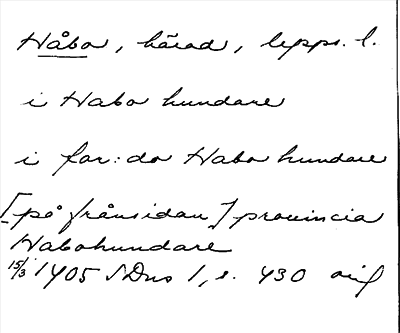 Håbo, härad, Upps. l.
i Habo hundare
i for: do Habo hundare
[på frånsidan] provincia
Habohundare
15/3 1405 SDns 1, s. 430 orig